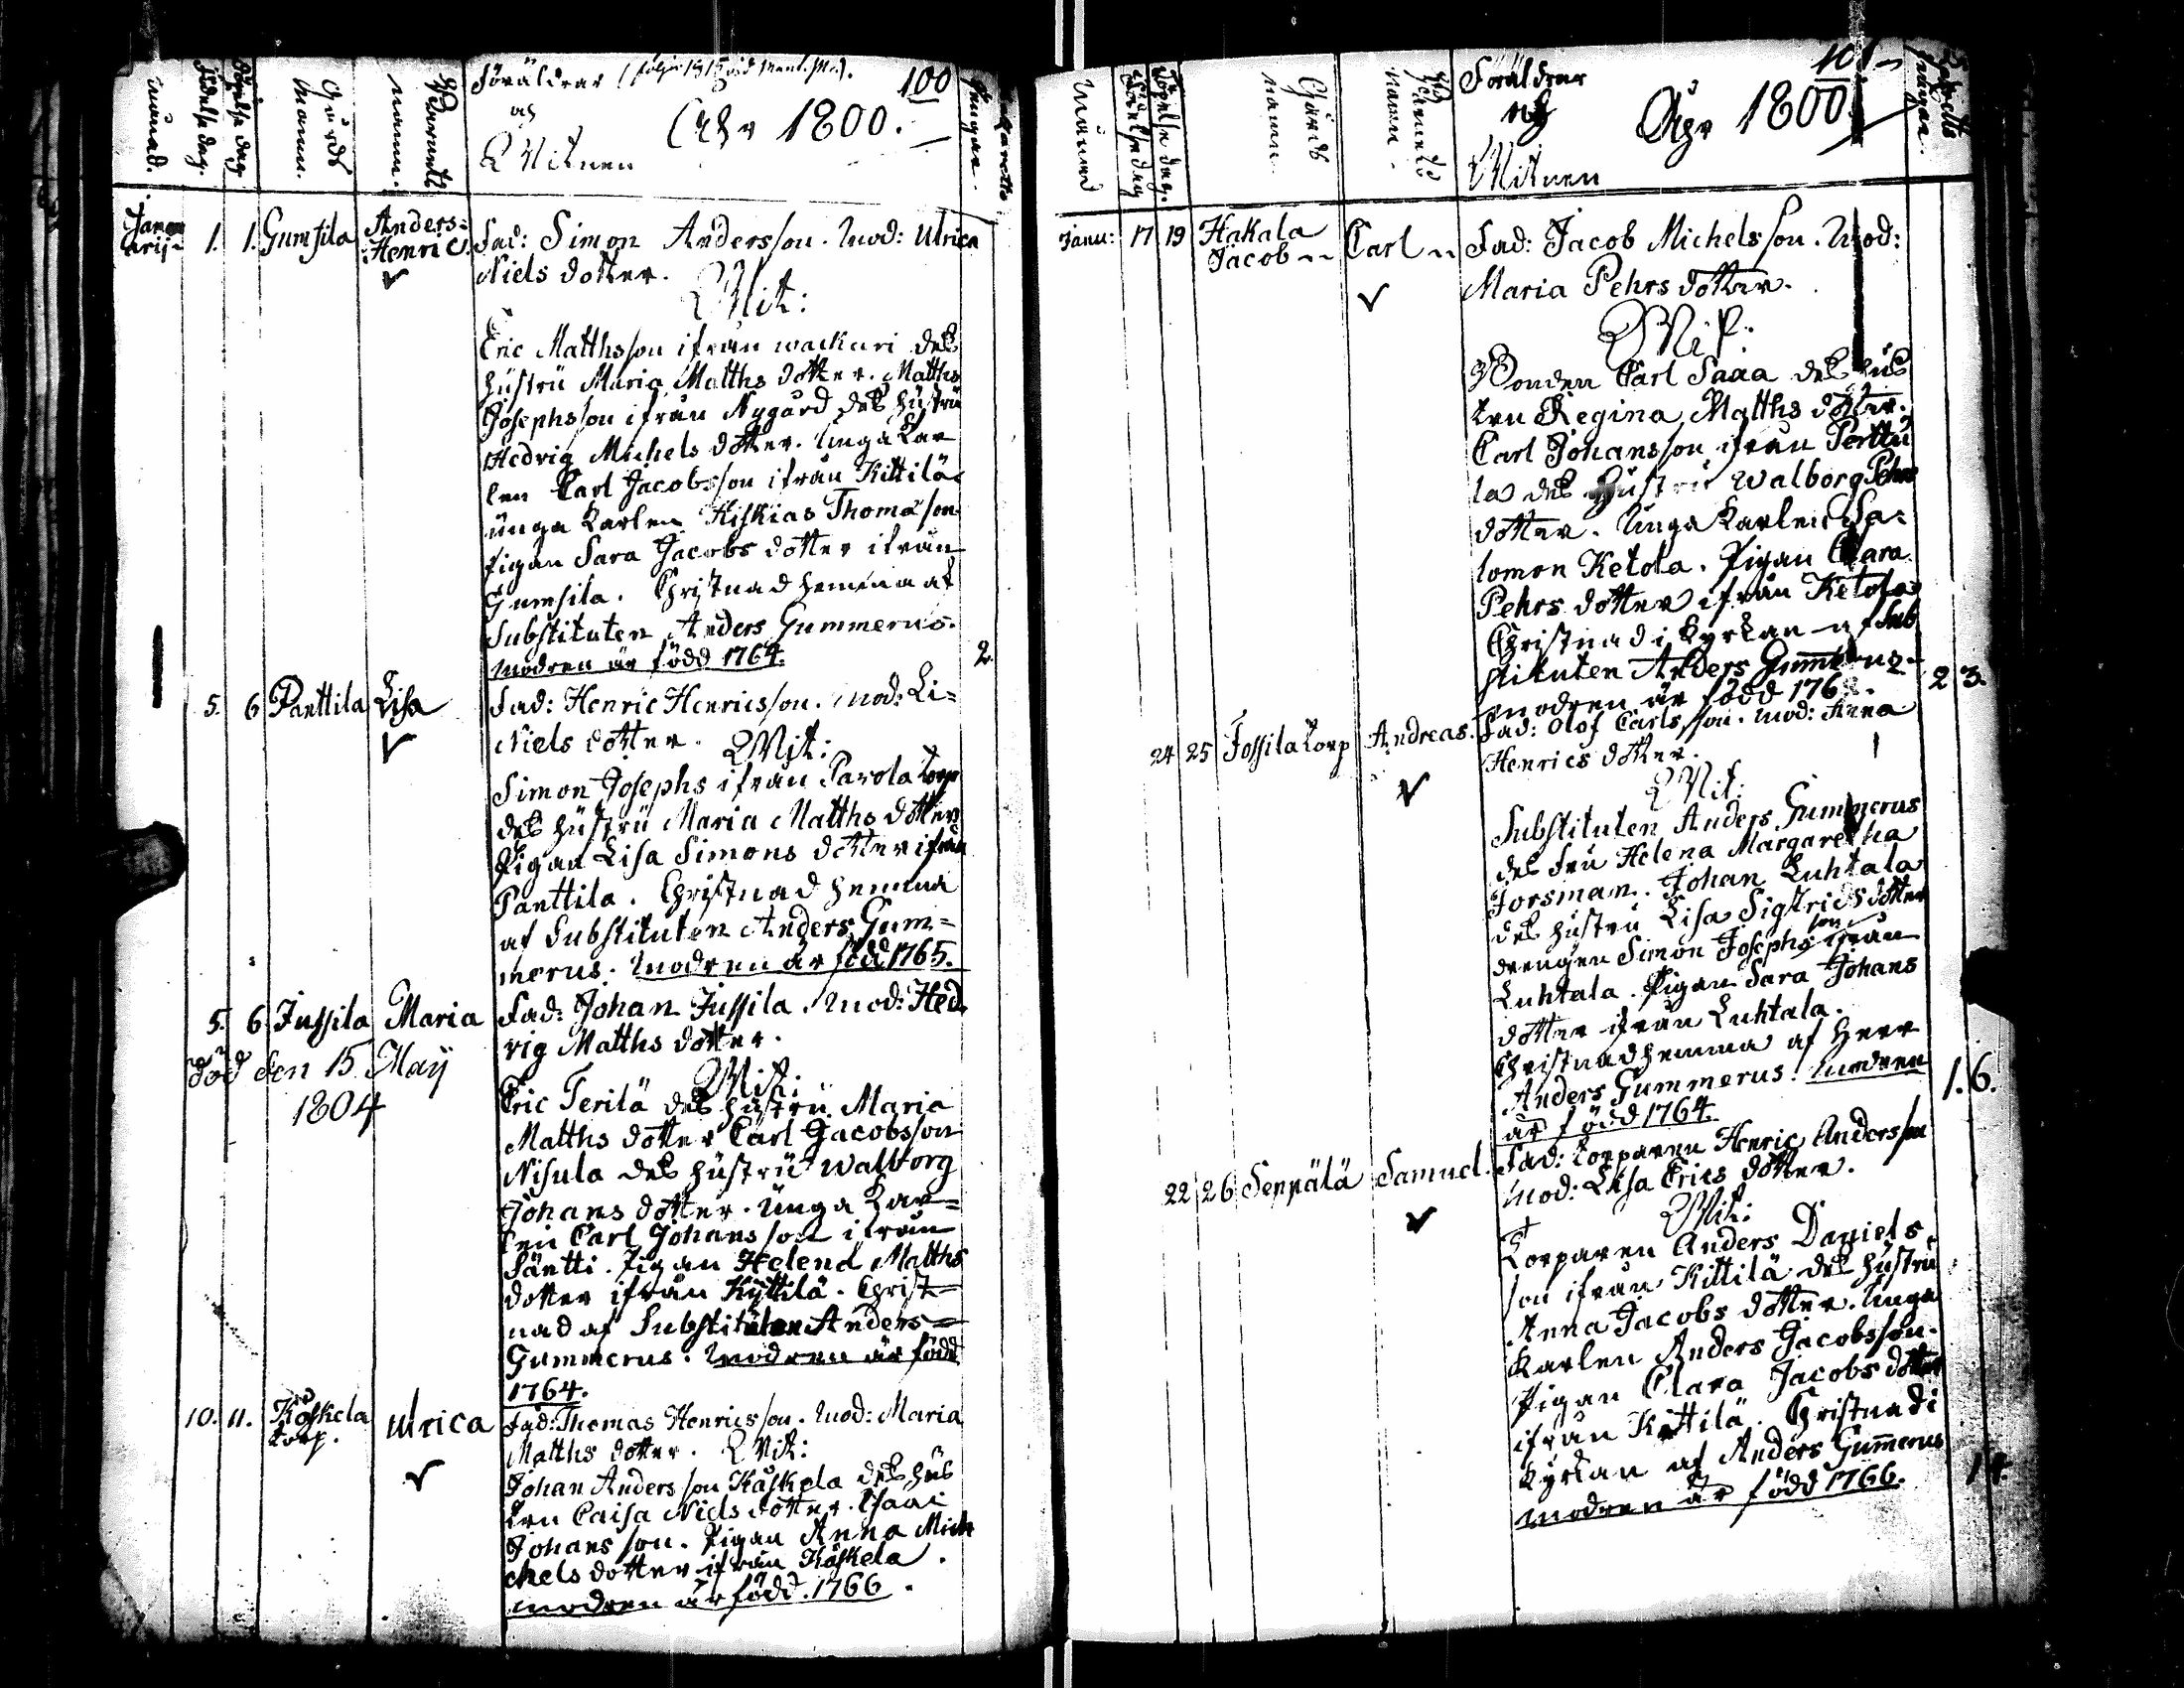 100
Föräldrar
Åhr 1800.
och
Witnen
månad.
Födelse dag.
Döpelse dag
Gårds
namn.
Barnets
namn.
Janu
arij
1.
1.
Gumsila
Anders=
Henric.
Fad: Simon Andersson. Mod: Ulrica
Niels dotter.
Wit:
Eric Matthsson ifrån wackuri deß
hustru Maria Matths dotter. Matths
Josephsson ifrån Nygård deß hustru
Hedvig Michels dotter. Unga Kar
len Carl Jacobsson ifrån Kittilä
unga Karlen Hiskias Thomasson
pigan Sara Jacobs dotter ifrån
Gumsila. Christnad hemma af
Substituten Anders Gummerus.
Modren är född 1764.
2
5.
6
Panttila
Lisa
Fad: Henric Henricsson. Mod: Li=
Niels dotter.
Wit:
Simon Josephs ifrån Parola torp
deß hustru Maria Matths dotter
Pigan Lisa Simons dotter ifrån
Panttila. Christnad hemma
af Substituten Anders Gum=
merus. Modren är född 1765.
5.
6
Jussila
Maria
Fad: Johan Jussila. Mod: Hed
vig Matths dotter.
död den 15 May
1804
Wit:
Eric Terilä deß hustru Maria
Matths dotter Carl Jacobsson
Nisula deß hustru Walborg
Johans dotter. Unga Kar=
len Carl Johansson ifrån
Säntti. Pigan Helena Matths
dotter ifrån Kyttilä. Christ=
nad af Substituten Anders
Gummerus. Modren är född
1764.
10.
11.
Koskela
torp.
Ulrica
Fad: Thomas Henricsson. Mod: Maria
Matths dotter. Wit:
Johan Andersson Koskela deß hus
tru Caisa Niels dotter. Isaac
Johansson. Pigan Anna Mich
chels dotter ifrån Koskela.
modren är född. 1766.
101
Föräldrar
och
Åhr 1800
Witnen
Månad
Födelse dag
Döpelse dag.
Gårds
namn
Barnets
namn
Janu:
17
19
Hakala
Jacob
Carl
Fad: Jacob Michelsson. Mod:
Maria Pehrs dotter.
Wit:
Bonden Carl Saaa deß hus
tru Regina Matths dotter.
Carl Johansson ifrån Perttu
la deß hustru Walborg Pehrs
dotter. Unga Karlen Sa=
lomon Ketola. Pigan Clara
Pehrs dotter ifrån Ketola
Christnad i Kyrkan af Sub
stituten Anders Gummerus
modren är född
2
3.
24
25
Fossila torp
Andreas.
Fad: Olof Carlsson. Mod: Anna
Henrics dotter.
Wit:
Substituten Anders Gummerus
deß fru Helena Margaretha
Forsman. Johan Luhtala
deß hustru Lisa Sigfrids dotter
drengen Simon Josephsson ifrån
Luhtala. Pigan Sara Johans
dotter ifrån Luhtala.
Christnad hemma af Herr
Anders Gummerus. Modren
är född 1764.
1.
6.
22
26
Seppälä
Samuel.
Fad: torparen Henric Andersson
Mod: Lisa Erics dotter.
Wit:
Torparen Anders Daniels
son ifrån Kittilä deß hustru
Anna Jacobs dotter. Unga
Karlen Anders Jacobsson.
Pigan Clara Jacobs dotter
ifrån Kittilä. Christnad i
Kyrkan af Anders Gummerus
modren är född 1766.
14.